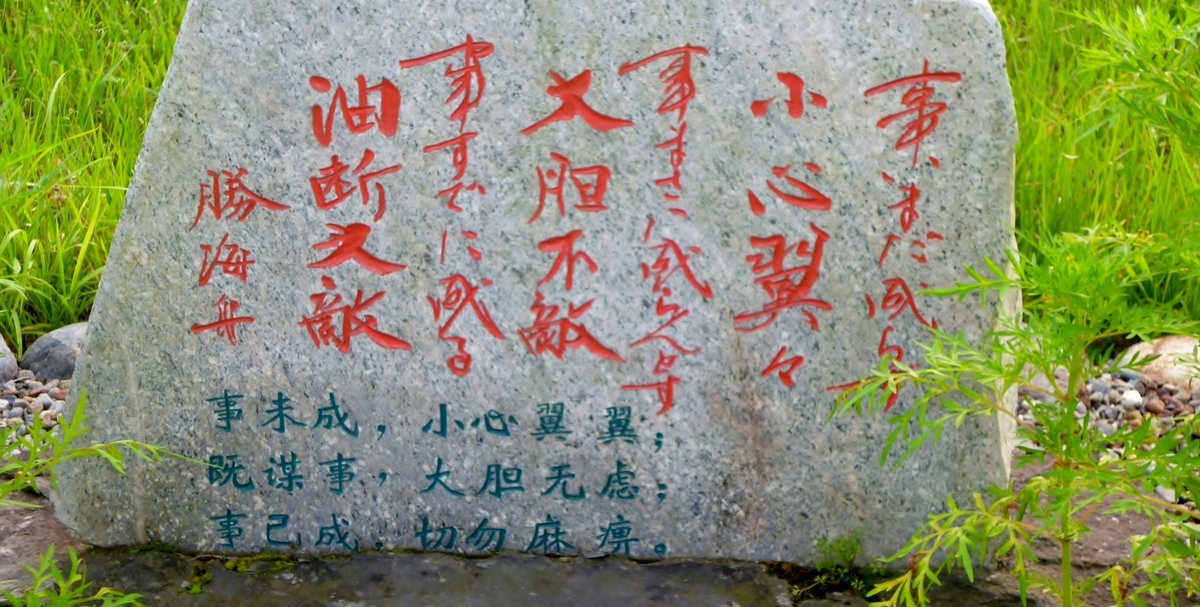 事、いまだ成らず
小心翼々
事まさに成らんとす
大胆不敵
事すでに成る
油断大敵
勝海舟
事未成，小心翼翼；
既谋事，大胆无虑；
事已成，切勿麻痹。